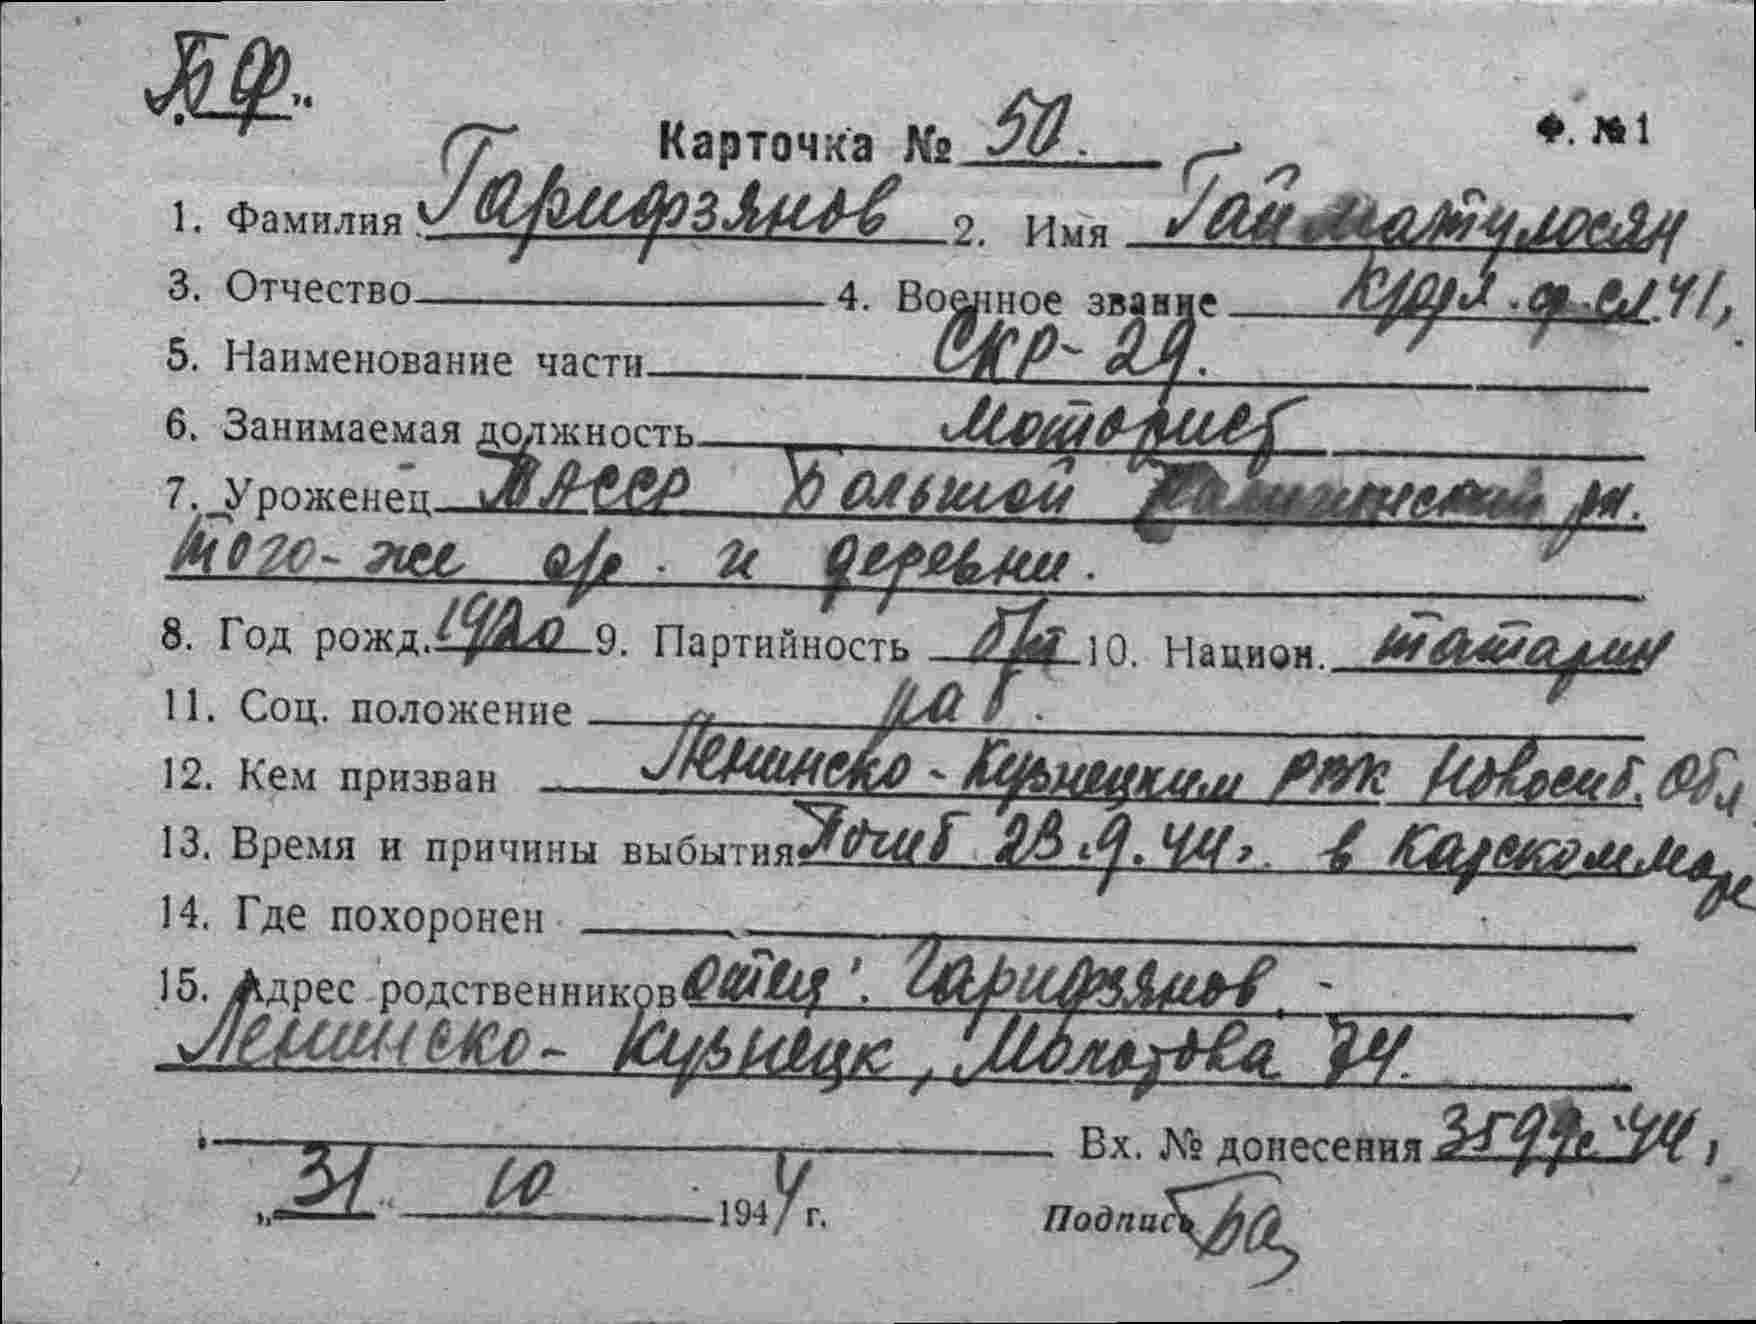 БФ.
Карточка № 50. Ф. №1
1. Фамилия Гарифзянов 2. Имя
3. Отчество 4. Военное звание сл. 41,
5. Наименование части СКР-29.
6. Занимаемая должность моторист
7. Уроженец ТАССР Большой рн.
того-же с/с. и деревни.
8. Год рожд. 1920 9. Партийность б/п 10. Национ. татарин
11. Соц. положение раб.
12. Кем призван Ленинско-Кузнецким РВК Новосиб. Обл
13. Время и причины выбытия Погиб 23.9.44г. в Карском море
14. Где похоронен
15. Адрес родственников отец: Гарифзянов
Ленинско-Кузнецк, Молотова 74.
Вх. № донесения 44,
„31" 10 1944 г. Подпись